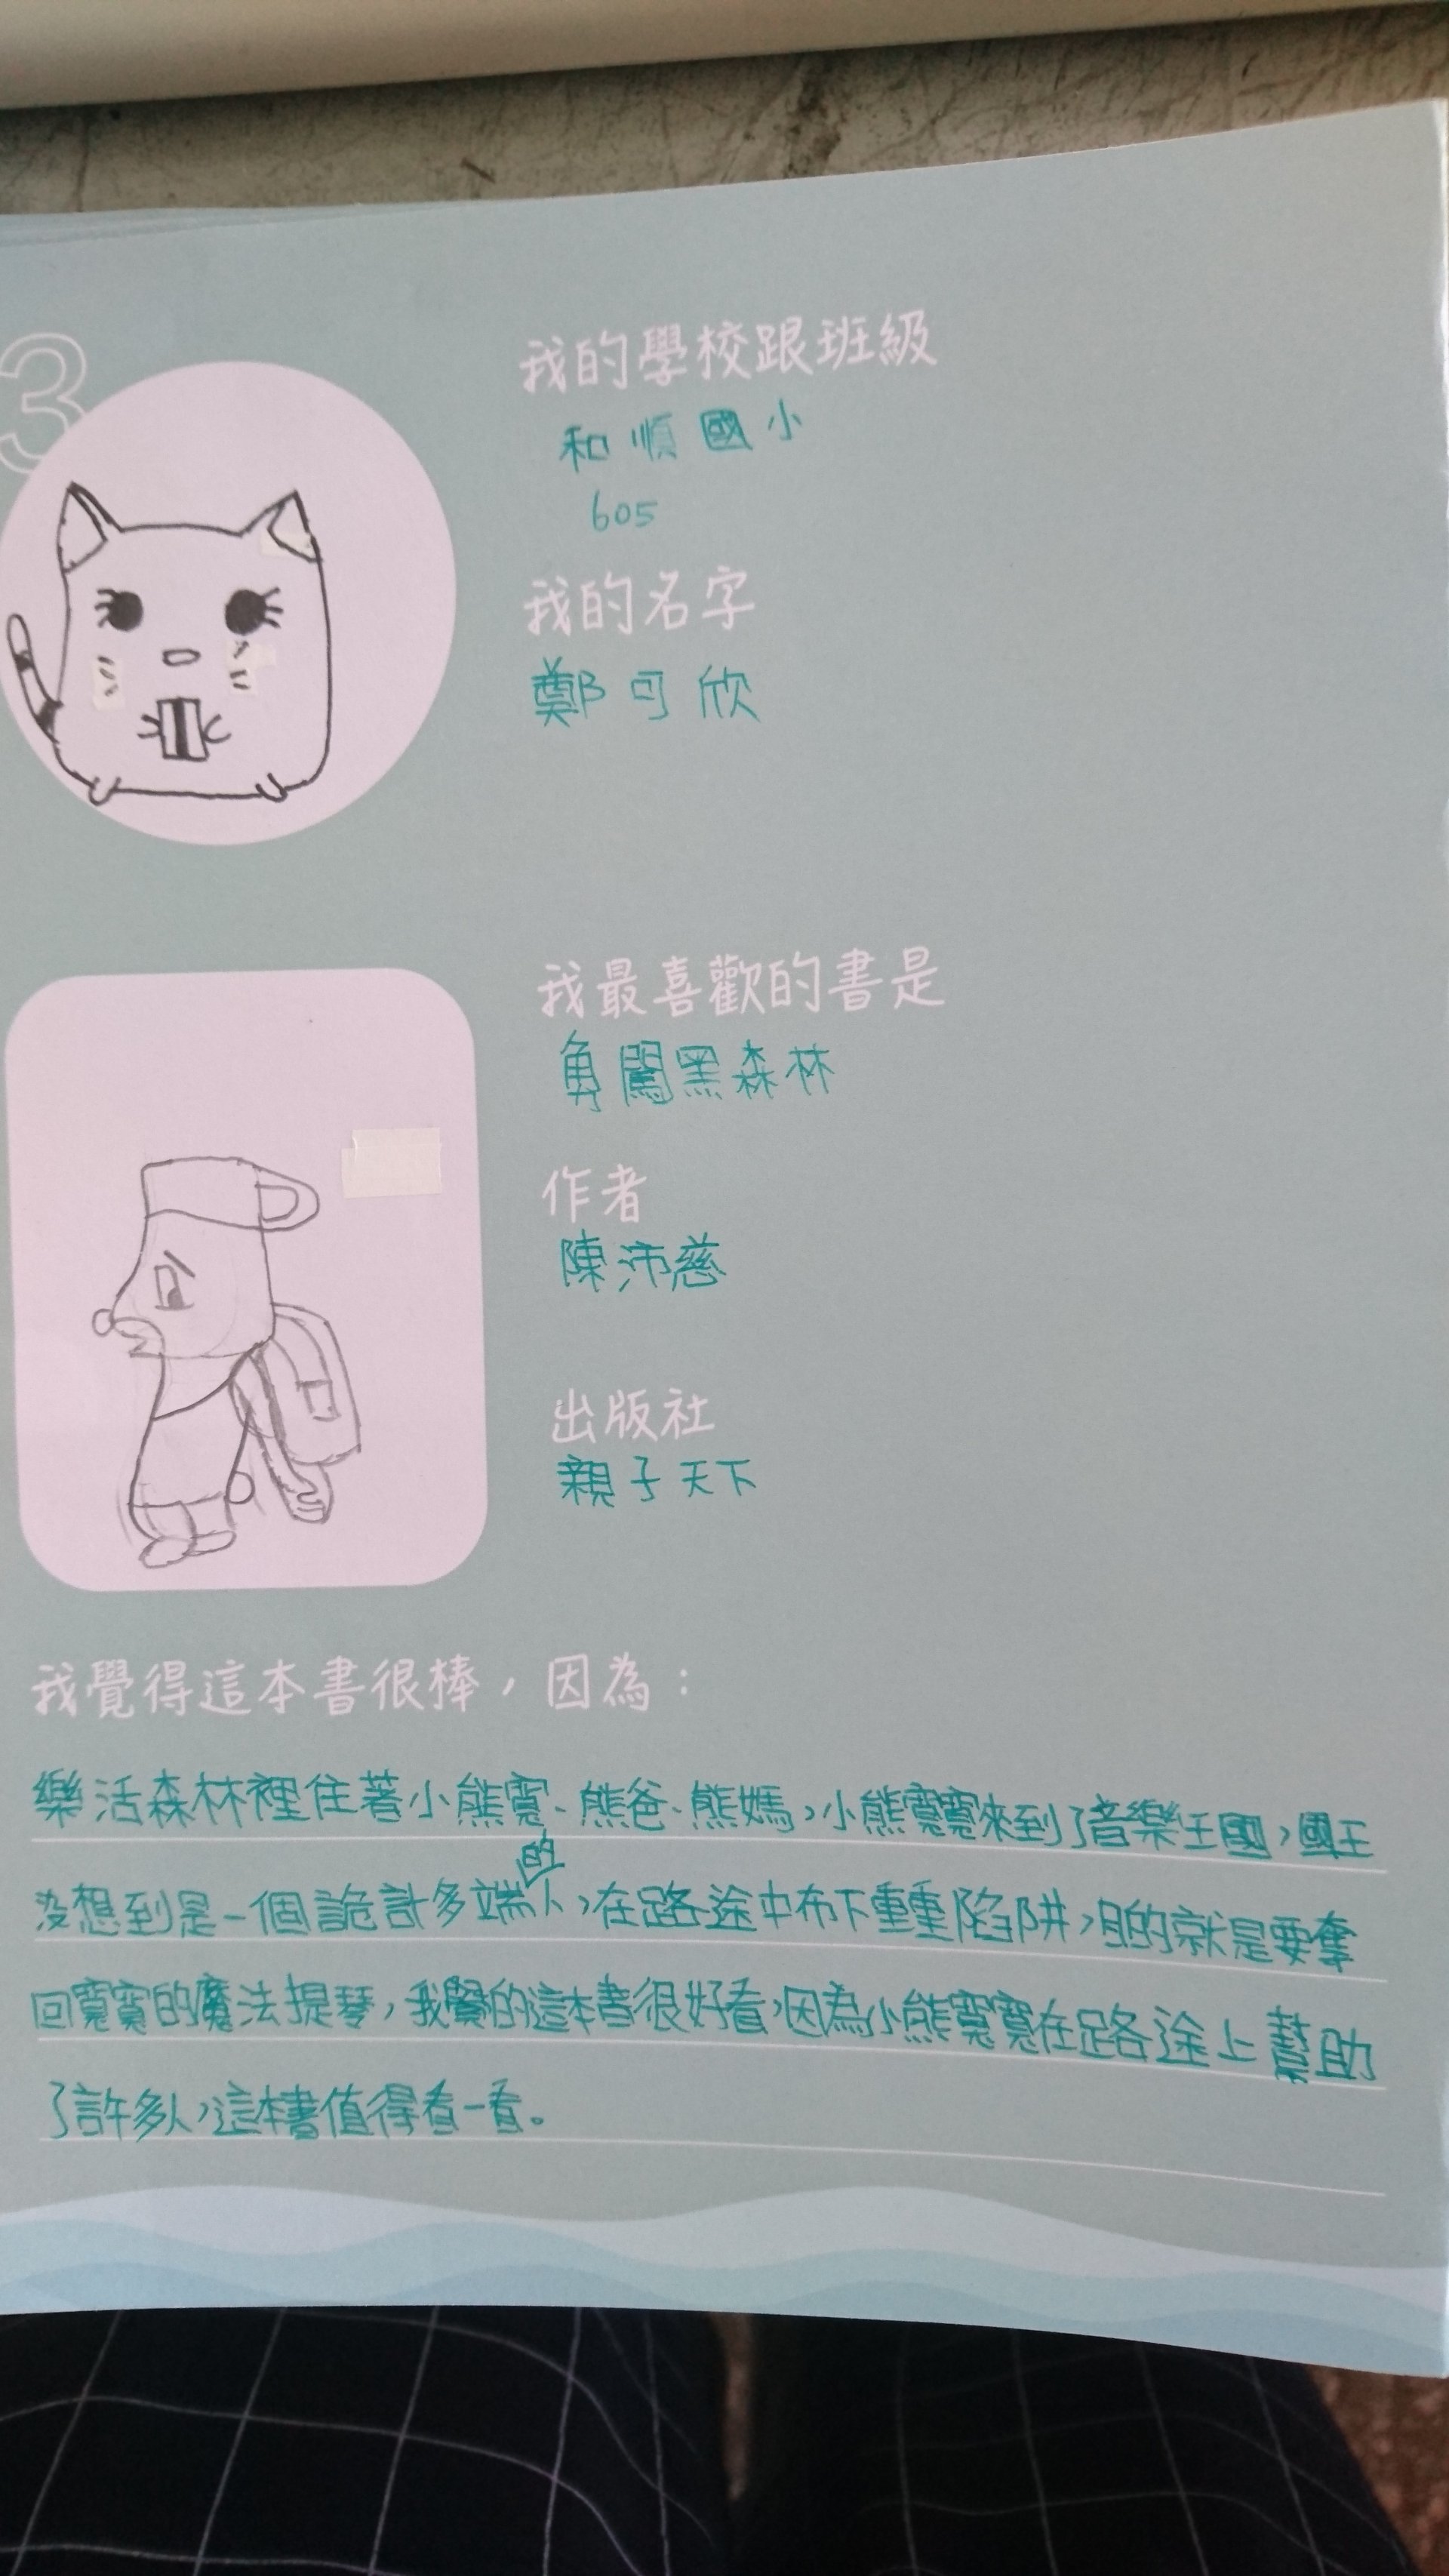 3
我的學校跟班級
和順國小
605
我的名字
鄭可欣
我最喜歡的書是
勇闖黑森林
作者
陳沛慈
出版社
親子天下
我覺得這本書很棒，因為：
樂活森林裡住著小熊寬、熊爸、熊媽，小熊寬寬來到了音樂王國，國王
沒想到是一個詭計多端的人，在路途中布下重重陷阱，目的就是要奪
回寬寬的魔法提琴，我覺的這本書很好看，因為小熊寬寬在路途上幫助
了許多人，這本書值得看一看。